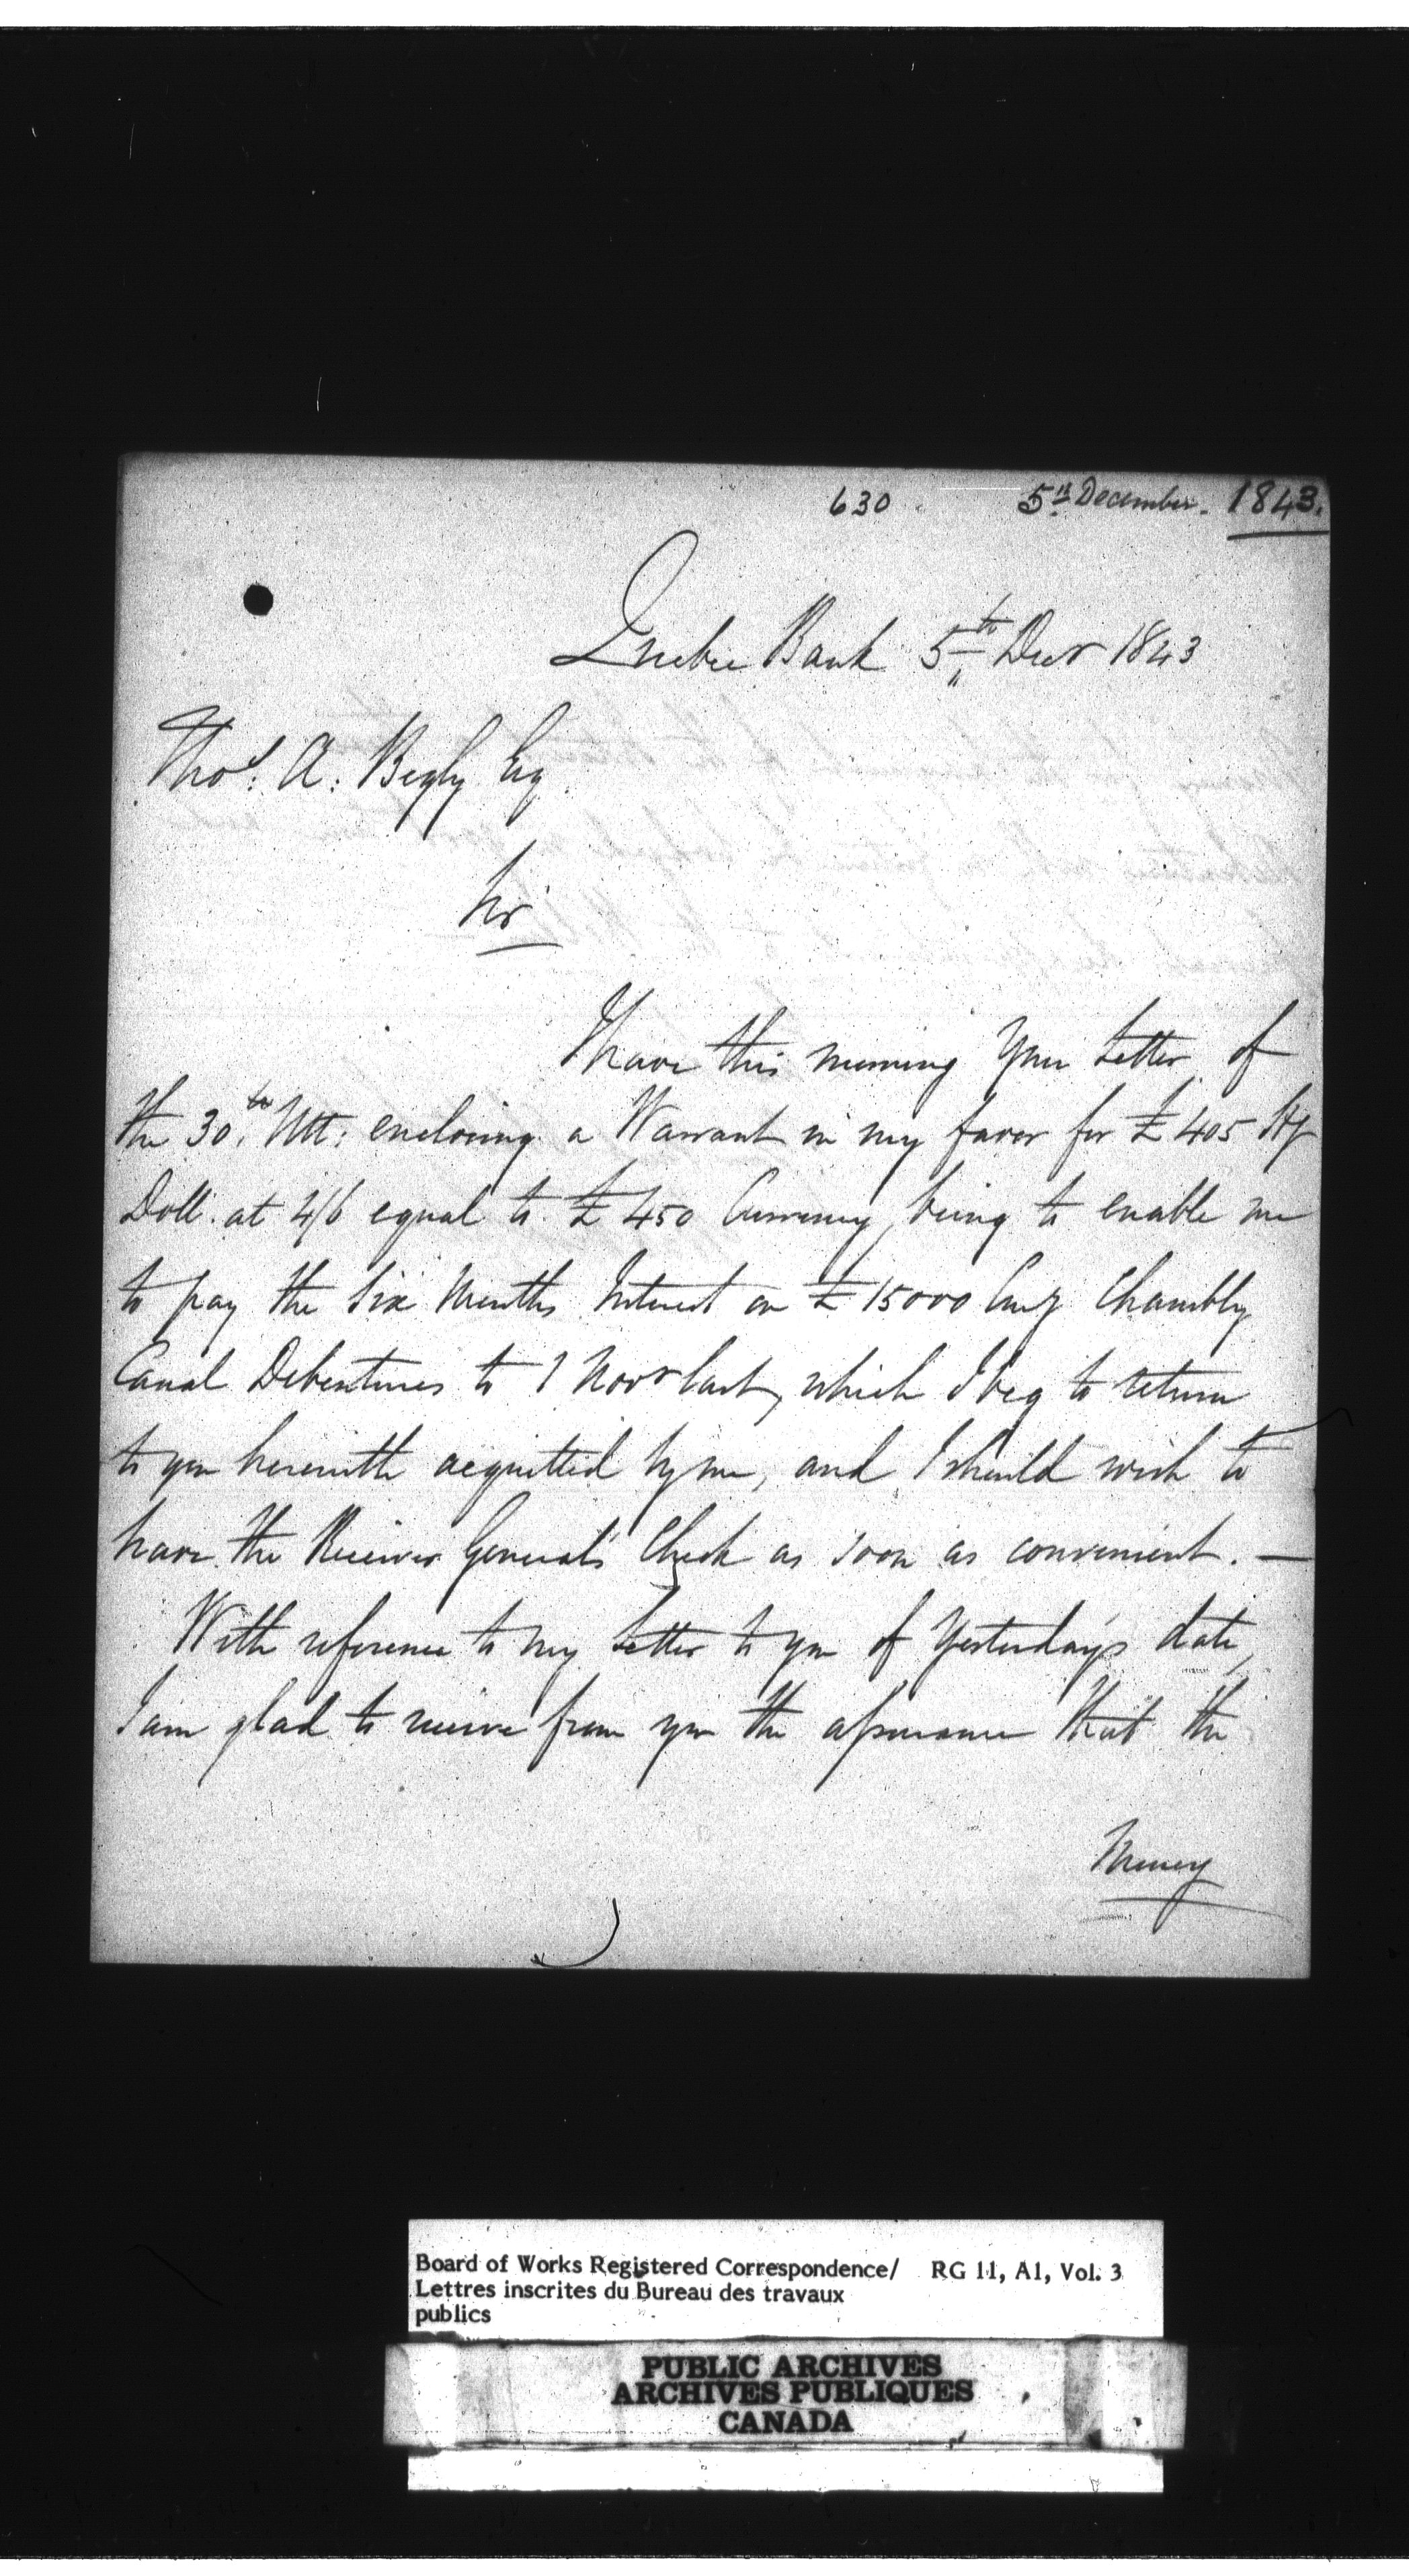 630 5th December. 1843.
Quebec Bank 5th Decr 1843
Thos: A: Begly Esq
Sir
I have this morning your letter of
the 30th Ult: enclosing a Warrant in my favor for £405 Stg
Doll. at 4/6 equal to £450 Currency, being to enable me
to pay the Six Months Interest on £15000 Curcy Chambly
Canal Debentures to 1 Novr last, which I beg to return
to you herewith acquitted by me, and I should wish to
have the Receiver General's Check as soon as convenient. —
With reference to my letter to you of Yesterday's date,
I am glad to receive from you the assurance that the
Money
Board of Works Registered Correspondence/ RG 11, A1, Vol. 3
Lettres inscrites du Bureau des travaux
publics
PUBLIC ARCHIVES
ARCHIVES PUBLIQUES
CANADA